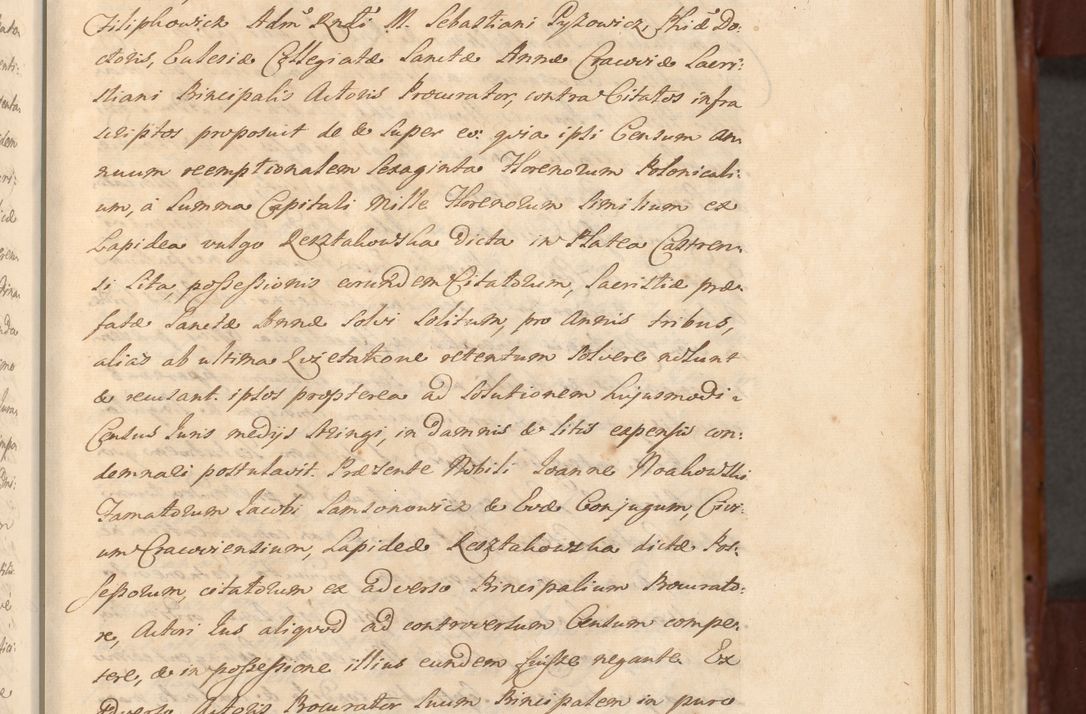 Filiphowicz Admo Rndi M. Sebastiani Pyzowicz Phiæ Do:
ctoris, Eulesiæ Collegiatæ Sanctæ Annæ Cracoviæ Sacri:
stiani Principalis Actoris Procurator, contra Citatos infra
scriptos proposuit de & super eo: quia ipsi Censum an,
nuum reemptionalem sexaginta Florenorum Polonicali
um, á Summa Capitali Mille Florenorum similium ex
Lapidea vulgo Resztakowska Dicta in Platea Castren,
si sita, possessionis eorundem Citatorum, Sacristiæ præ,
fatæ Sanctæ Annæ solvi solitum, pro Annis tribus,
alias ab ultima Quietatione retentum solvere nolunt
& recusant. ipsos propterea ad Solutionem hujusmodi
Census Iuris medijs stringi, in damnis & litis expensis con:
demnari postulavit. Præsente Nobili Joanne Noakowski
Famatorum Jacobi Samsonowicz & Evæ Conjugum, Civi:
um Cracoviensium, Lapideæ Resztakowska dictæ Pos:
sessorum, citatorum ex adverso Principalium Procurato:
re, Actori Ius aliquod ad controversum Censum compe,
tere, & in possessione illius eundem fuisse negante. Ex
adverso Actoris Procurator suum Principalem in puro